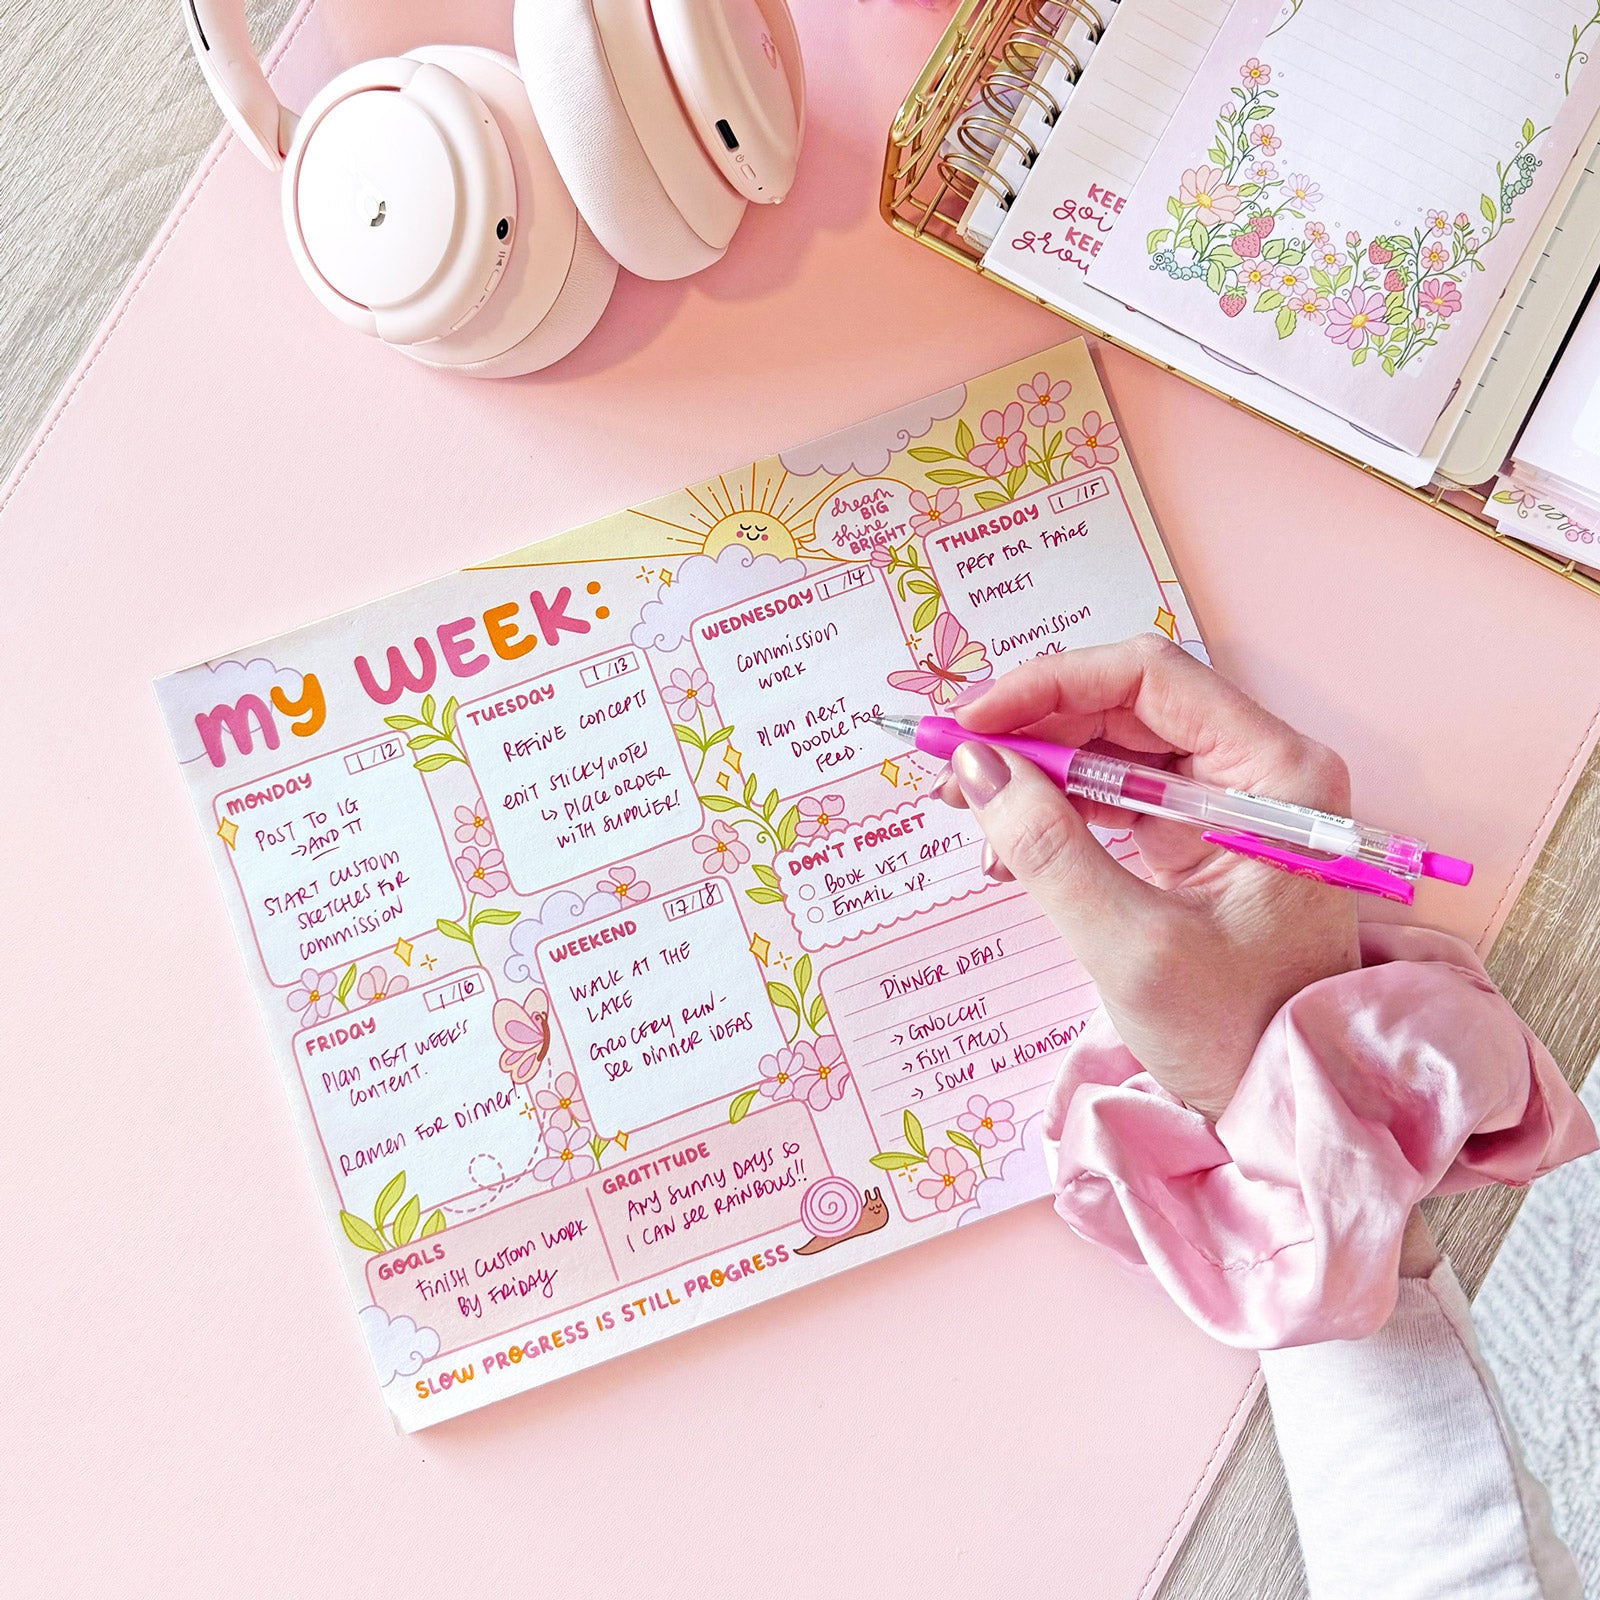 my WEEK:
dream
BIG
shine
BRIGHT
MONDAY 1/12
POST TO IG
→AND TT
START CUSTOM
SKETCHES FOR
COMMISSION
TUESDAY 1/13
REFINE CONCEPTS
EDIT STICKY NOTES
↳ PLACE ORDER
WITH SUPPLIER!
WEDNESDAY 1/14
COMMISSION
WORK
Plan NEXT
DOODLE FOR
FEED.
THURSDAY 1/15
PREP FOR FAIRE
MARKET
COMMISSION
WORK
FRIDAY 1/16
Plan NEXT WEEK'S
CONTENT.
RAMEN FOR DINNER!
WEEKEND 17/18
WALK AT THE
LAKE
GROCERY RUN-
SEE DINNER IDEAS
DON'T FORGET
BOOK VET APPT.
EMAIL VP.
DINNER IDEAS
→ GNOCCHI
→ FISH TACOS
→ SOUP W. HOMEM
GOALS
FINISH CUSTOM WORK
BY FRIDAY
GRATITUDE
ANY SUNNY DAYS SO
I CAN SEE RAINBOWS!!
SLOW PROGRESS IS STILL PROGRESS
KEE
goi
KEE
grow